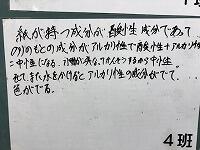 紙が持つ成分が酸性成分であって
のりのもとの成分がアルカリ性で酸性+アルカリ性
=中性になる。
そして、また水をかけるとアルカリ性の成分がでて、
色がでる。
4班